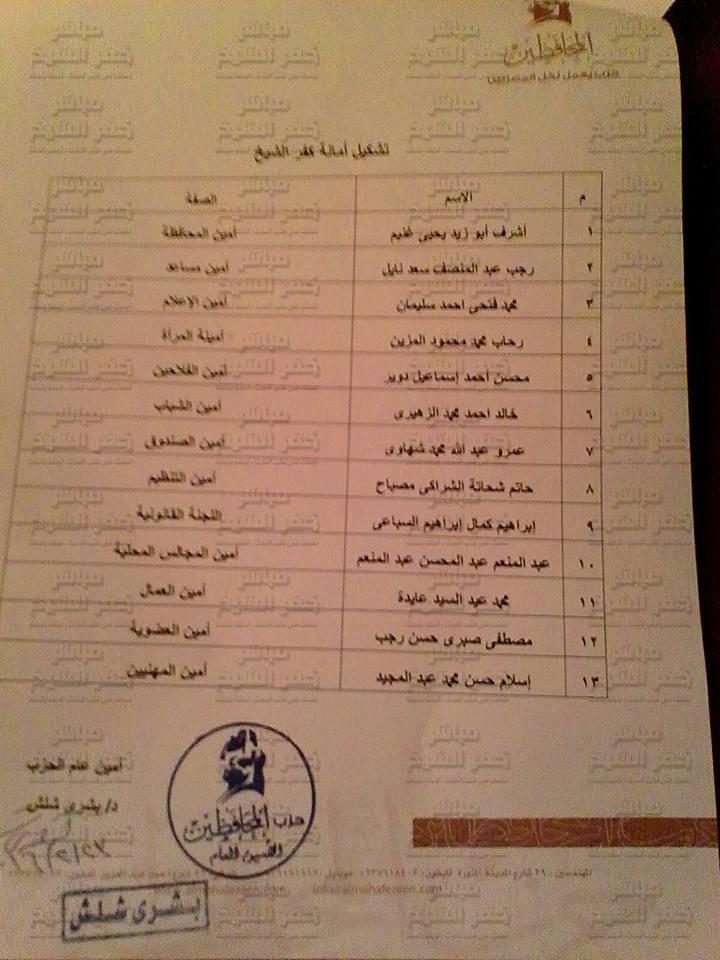 المحافظين
حزب يعمل لكل المصريين
تشكيل أمانة كفر الشيخ
م الاسم الصفة
١ أشرف أبو زيد يحيى غنيم أمين المحافظة
٢ رجب عبد المنصف سعد نايل أمين مساعد
٣ محمد فتحى احمد سليمان أمين الإعلام
٤ رحاب محمد محمود المزين أمينة المرأة
٥ محسن أحمد إسماعيل دوير أمين الفلاحين
٦ خالد احمد محمد الزهيرى أمين الشباب
٧ عمرو عبد الله محمد شهاوى أمين الصندوق
٨ حاتم شحاتة الشراكى مصباح أمين التنظيم
٩ إبراهيم كمال إبراهيم السباعى اللجنة القانونية
١٠ عبد المنعم عبد المحسن عبد المنعم أمين المجالس المحلية
١١ محمد عبد السيد عايدة أمين العمال
١٢ مصطفى صبرى حسن رجب أمين العضوية
١٣ إسلام حسن محمد عبد المجيد أمين المهنيين
أمين عام الحزب
د/ بشرى شلش
حزب المحافظين
الأمين العام
بشرى شلش
المهندسين : ٢٩ شارع المدينة المنورة
info@almohafezeen.com
مباشر كفر الشيخ